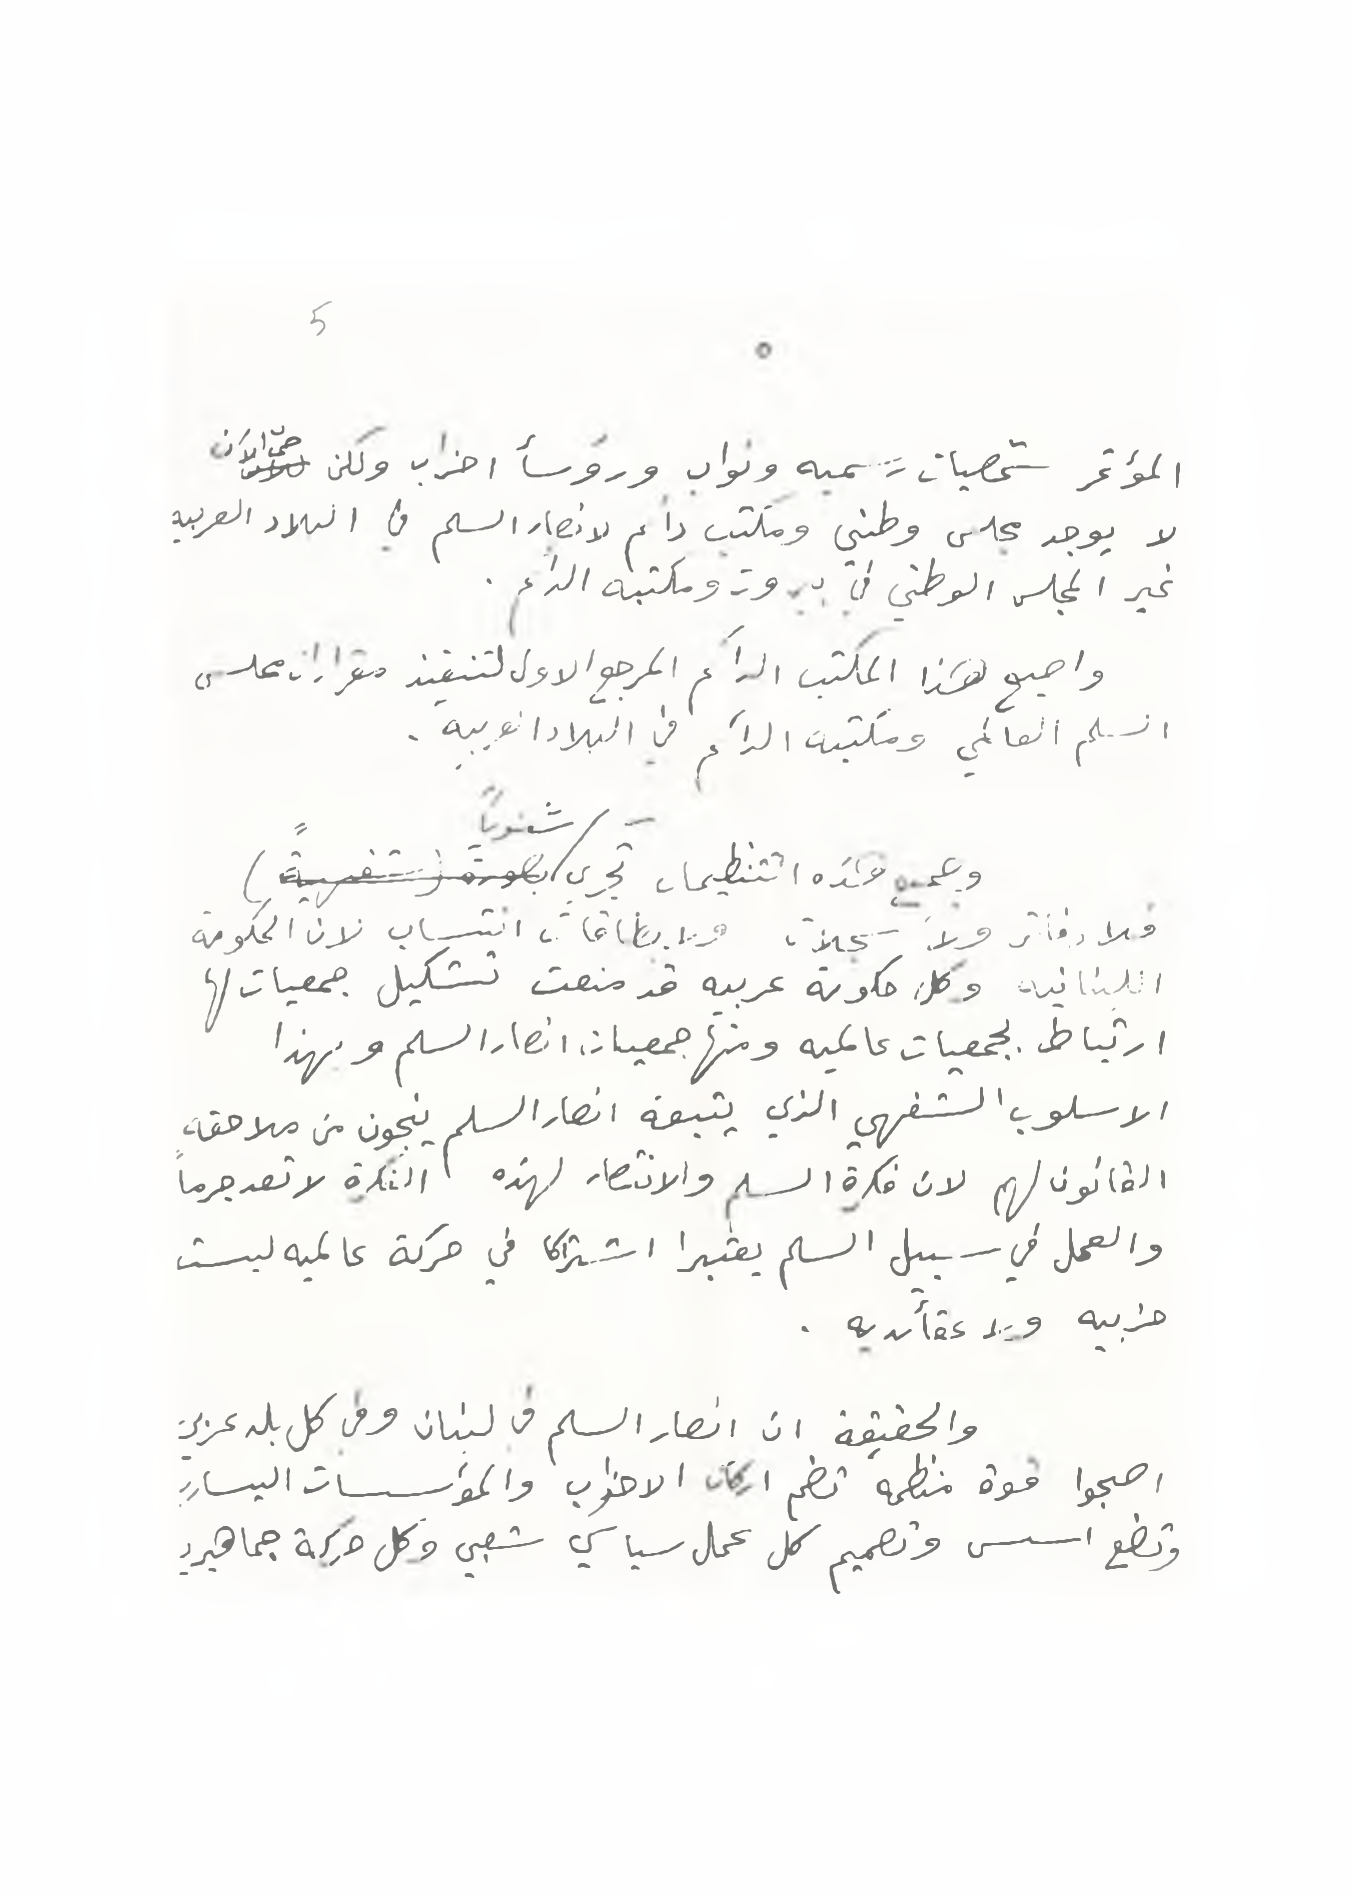 5
٥
المؤتمر شخصيات رسميه ونواب ورؤسأ احزاب ولكن حتى الآن
لا يوجد مجلس وطني ومكتب دائم لانصار السلم في البلاد العربيه
غير المجلس الوطني في بيروت ومكتبه الدائم .
واصبح هذا المكتب الدائم المرجع الاول لتنفيذ مقرارات مجلس
السلم العالمي ومكتبه الدائم في البلاد العربيه .
شفوياً
وجميع هذه التنظيمات تجري بصورة (شفهيةً)
فلا دفاتر ولا سجلات ولا بطاقات انتساب لان الحكومة
اللبنانيه وكل حكومة عربيه قد منعت تشكيل جمعيات لها
ارتباط بجمعيات عالميه ومنها جمعيات انصار السلم وبهذا
الاسلوب الشفهي الذي يتبعه انصار السلم ينجون من ملاحقة
القانون لهم لان فكرة السلم والانتصار لهذه الفكرة لا تعد جرماً
والعمل في سبيل السلم يعتبر اشتراكا في حركة عالميه ليست
حزبيه ولا عقأديه .
والحقيقة ان انصار السلم في لبنان وفي كل بلد عربي
اصبحوا قوة منظمة تضم اركان الاحزاب والمؤسسات اليساريه
وتضع اسس وتصميم كل عمل سياسي شعبي وكل حركة جماهيريه